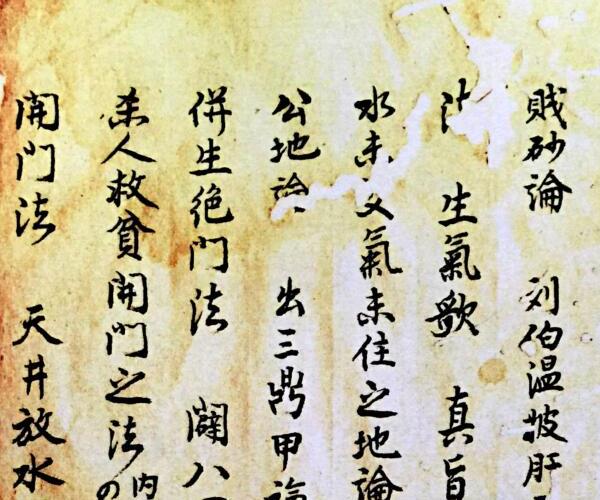 賊砂論 刘伯温披肝
生氣歌 真旨
水未交氣未住之地論
公地論 出三鼎甲論
併生絶門法 闢八
杀人救貧開門之法 内
開門法 天井放水